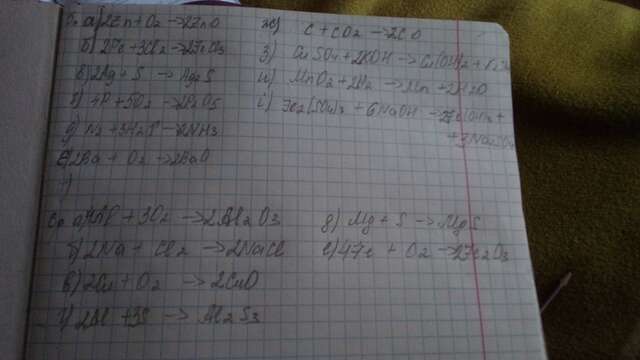 5. а) 2Zn + O2 → 2ZnO
б) 2Fe + 3Cl2 → 2FeCl3
в) 2Ag + S → Ag2S
г) 4P + 5O2 → 2P2O5
д) N2 + 3H2 → 2NH3
е) 2Ba + O2 → 2BaO
ж) C + CO2 → 2CO
з) CuSO4 + 2KOH → Cu(OH)2 +
и) MnO2 + 2H2 → Mn + 2H2O
і) Fe2(SO4)3 + 6NaOH → 2Fe(OH)3 +
+ 3Na2SO4
6. а) 4Al + 3O2 → 2Al2O3
б) 2Na + Cl2 → 2NaCl
в) 2Cu + O2 → 2CuO
г) 2Al + 3S → Al2S3
д) Mg + S → MgS
е) 4Fe + O2 → 2Fe2O3